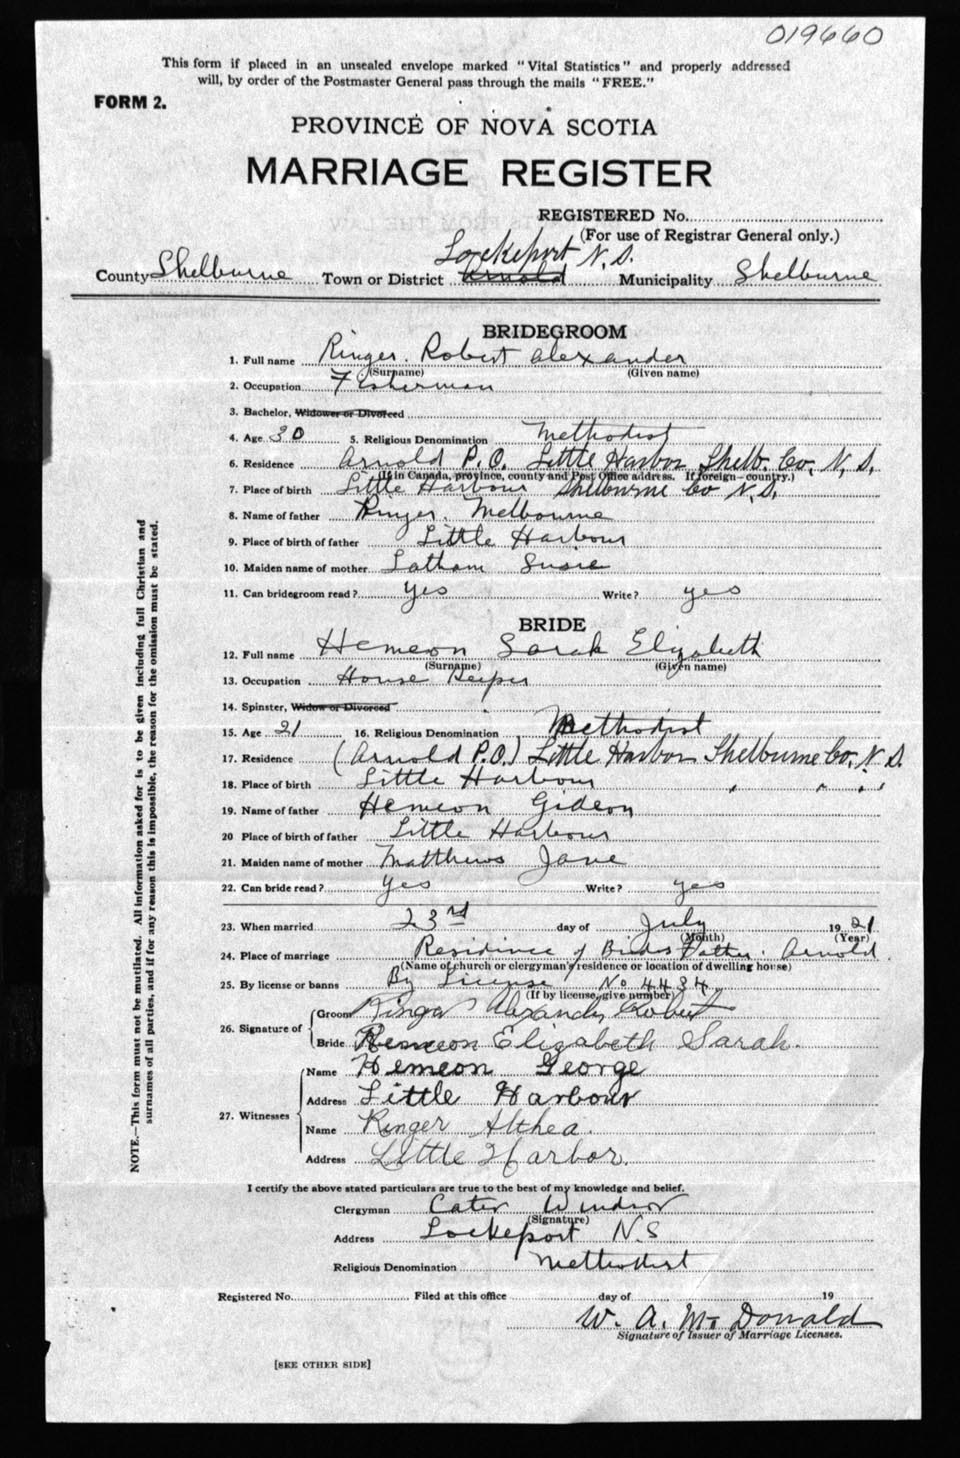 019660
This form if placed in an unsealed envelope marked "Vital Statistics" and properly addressed
will, by order of the Postmaster General pass through the mails "FREE."
FORM 2.
PROVINCE OF NOVA SCOTIA
MARRIAGE REGISTER
REGISTERED No.
(For use of Registrar General only.)
Lockeport N.S.
County Shelburne Town or District Arnold Municipality Shelburne
BRIDEGROOM
1. Full name Ringer. Robert Alexander
(Surname) (Given name)
2. Occupation Fisherman
3. Bachelor, Widower or Divorced
4. Age 30 5. Religious Denomination Methodist
6. Residence Arnold P.O. Little Harbor Shelb. Co. N.S.
(If in Canada, province, county and Post Office address. If foreign—country.)
7. Place of birth Little Harbour Shelburne Co N.S.
8. Name of father Ringer. Melbourne
9. Place of birth of father Little Harbour
10. Maiden name of mother Latham Susie
11. Can bridegroom read? Yes Write? yes
BRIDE
12. Full name Hemeon Sarah Elizabeth
(Surname) (Given name)
13. Occupation House Keeper
14. Spinster, Widow or Divorced
15. Age 21 16. Religious Denomination Methodist
17. Residence (Arnold P.O.) Little Harbor Shelburne Co. N.S.
18. Place of birth Little Harbour " " "
19. Name of father Hemeon Gideon
20 Place of birth of father Little Harbour
21. Maiden name of mother Matthews Jane
22. Can bride read? Yes Write? yes
23. When married 23rd day of July 1921
(Month) (Year)
24. Place of marriage Residence of Brides Father. Arnold
(Name of church or clergyman's residence or location of dwelling house)
25. By license or banns By License No 4434.
(If by license, give number)
26. Signature of Groom Ringer Alexander Robert
Bride Hemeon Elizabeth Sarah.
27. Witnesses Name Hemeon George
Address Little Harbour
Name Ringer Althea.
Address Little Harbor.
I certify the above stated particulars are true to the best of my knowledge and belief.
Clergyman Cater Windsor
(Signature)
Address Lockeport N.S
Religious Denomination Methodist
Registered No. Filed at this office day of 19
W. A. McDonald
Signature of Issuer of Marriage Licenses.
[SEE OTHER SIDE]
NOTE.—This form must not be mutilated. All information asked for is to be given including full Christian and
surnames of all parties, and if for any reason this is impossible, the reason for the omission must be stated.